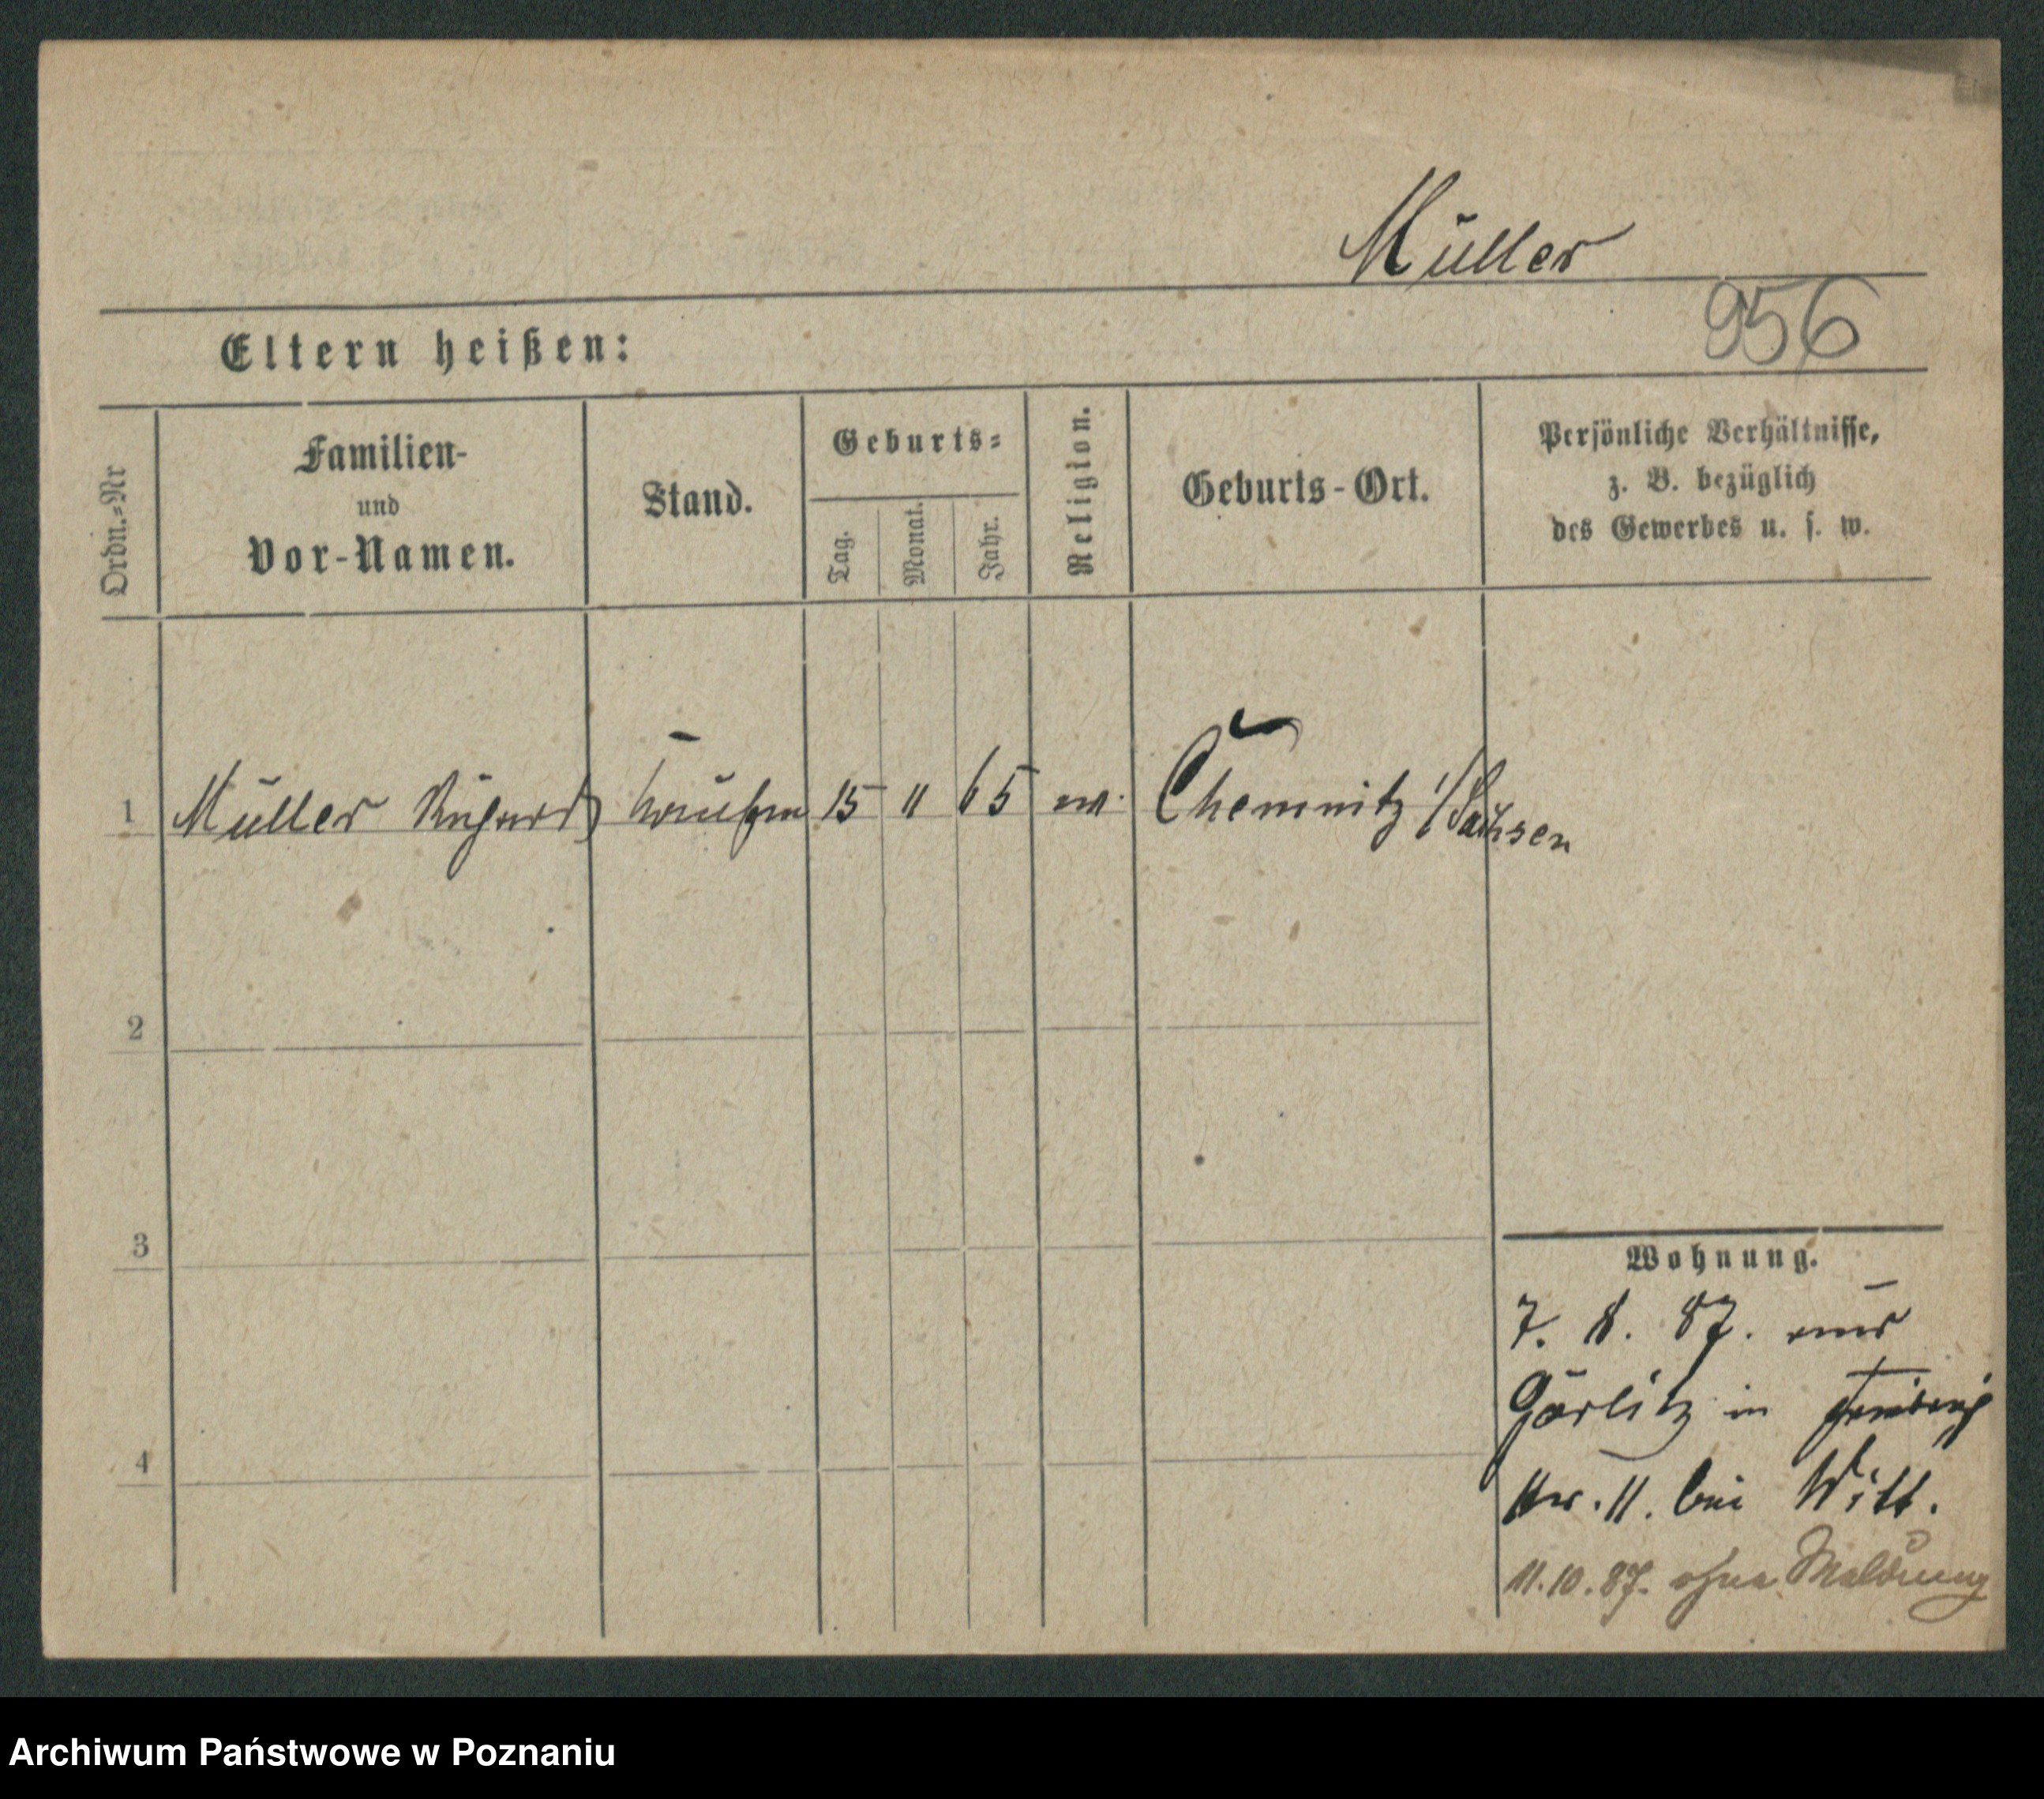 Müller
956
Eltern heißen:
Ordn.-Nr
Familien-
und
Vor-Namen.
Stand.
Geburts-
Tag.
Monat.
Jahr.
Religion.
Geburts-Ort.
Persönliche Verhältnisse,
z. B. bezüglich
des Gewerbes u. s. w.
1 Müller Richard Kaufm 15 11 65 ev. Chemnitz i/Sachsen
2
3
4
Wohnung.
7. 8. 87. aus
Görlitz in
Nr. 11. bei Witt.
11.10.87. ohne Meldung
Archiwum Państwowe w Poznaniu